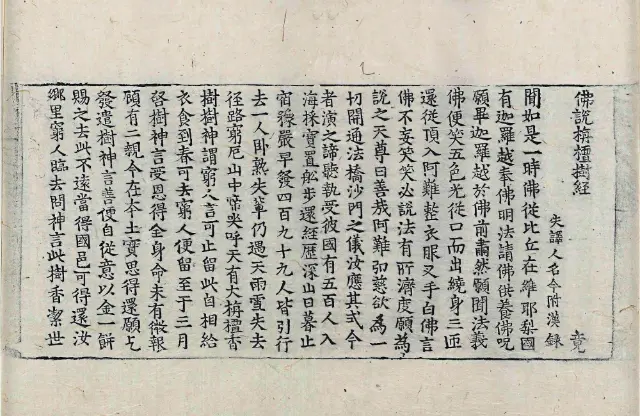 佛說栴檀樹經
失譯人名今附漢錄 竟
聞如是一時佛從比丘在維耶梨國
有迦羅越奉佛明法請佛供養佛呪
願畢迦羅越於佛前肅然願聞法義
佛便笑五色光從口而出繞身三匝
還從頂入阿難整衣服叉手白佛言
佛不妄笑笑必說法有所濟度願為
說之天尊曰善哉阿難弘慈欲為一
切開通法橋沙門之儀汝應其式今
者演之諦聽執受彼國有五百人入
海採寶置舩步還經歷深山日暮止
宿預嚴早發四百九十九人皆引行
去一人卧熟失輩仍遇天雨雪失去
徑路窮厄山中啼哭呼天有大栴檀香
樹樹神謂窮人言可止留此自相給
衣食到春可去窮人便留至于三月
啓樹神言受恩得全身命未有微報
顧有二親今在本土實思得還願乞
發遣樹神言善便自從意以金一餅
賜之去此不遠當得國邑可得還汝
鄉里窮人臨去問神言此樹香潔世